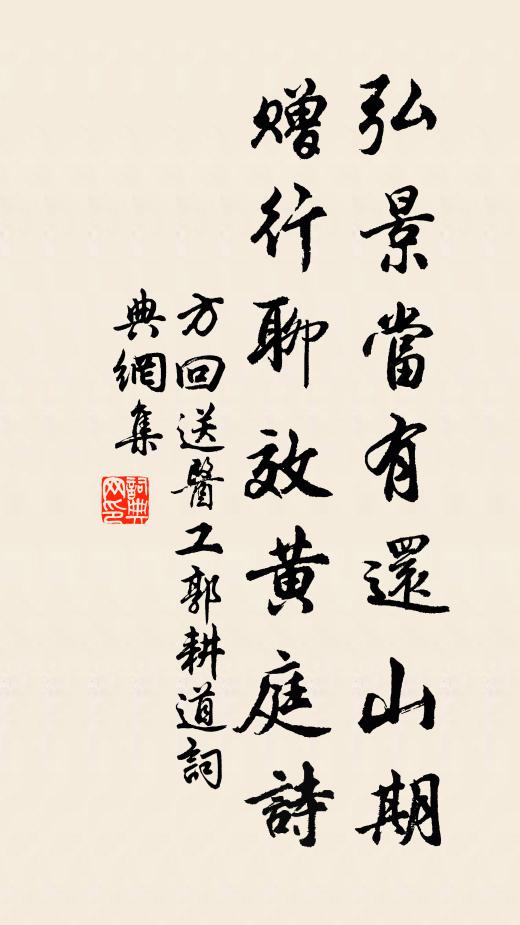 弘景當有還山期
贈行聊效黃庭詩
方回送醫工郭耕道詞
典網集
詞典網印